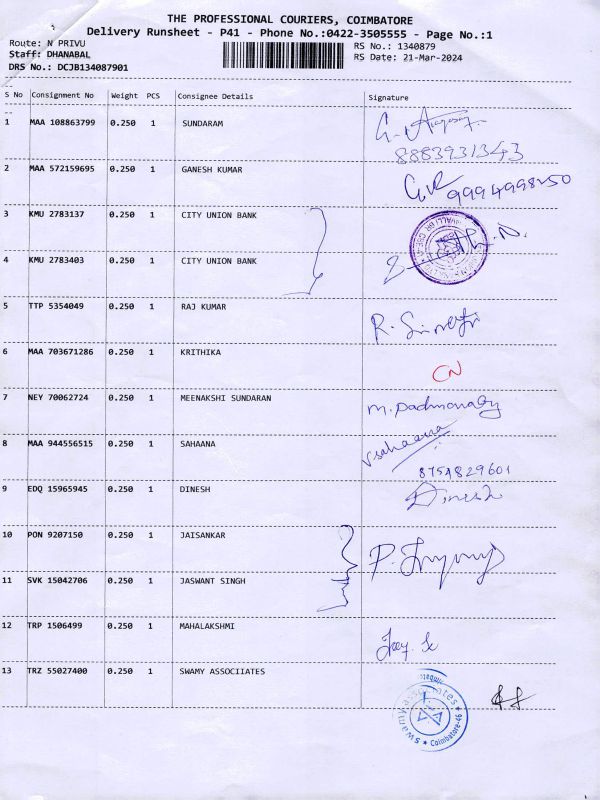 THE PROFESSIONAL COURIERS, COIMBATORE
Delivery Runsheet - P41 - Phone No.:0422-3505555 - Page No.:1
Route: N PRIVU
RS No.: 1340879
Staff: DHANABAL
RS Date: 21-Mar-2024
DRS No.: DCJB134087901
S No Consignment No Weight PCS Consignee Details Signature
1 MAA 108863799 0.250 1 SUNDARAM
8883931343
2 MAA 572159695 0.250 1 GANESH KUMAR
3 KMU 2783137 0.250 1 CITY UNION BANK
4 KMU 2783403 0.250 1 CITY UNION BANK
5 TTP 5354049 0.250 1 RAJ KUMAR
6 MAA 703671286 0.250 1 KRITHIKA
CN
7 NEY 70062724 0.250 1 MEENAKSHI SUNDARAN
8 MAA 944556515 0.250 1 SAHAANA sahaana
8754829601
9 EDQ 15965945 0.250 1 DINESH Dinesh
10 PON 9207150 0.250 1 JAISANKAR
11 SVK 15042706 0.250 1 JASWANT SINGH
12 TRP 1506499 0.250 1 MAHALAKSHMI
13 TRZ 55027400 0.250 1 SWAMY ASSOCIIATES
Swamy Associates
Coimbatore-46